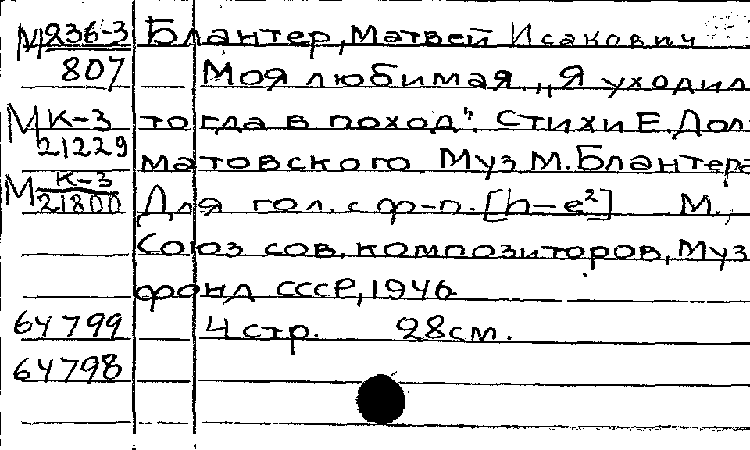 М 236-3 Блантер, Матвей Исакович
807 Моя любимая. „Я уходил
М К-3 тогда в поход". Стихи Е. Дол-
21229
матовского. Муз М. Блантера
М К-3
21800 Для гол. с ф-п. [h-e²] М.,
Союз сов. композиторов, Муз
фонд СССР, 1946
64799 4 стр. 28 см.
64798